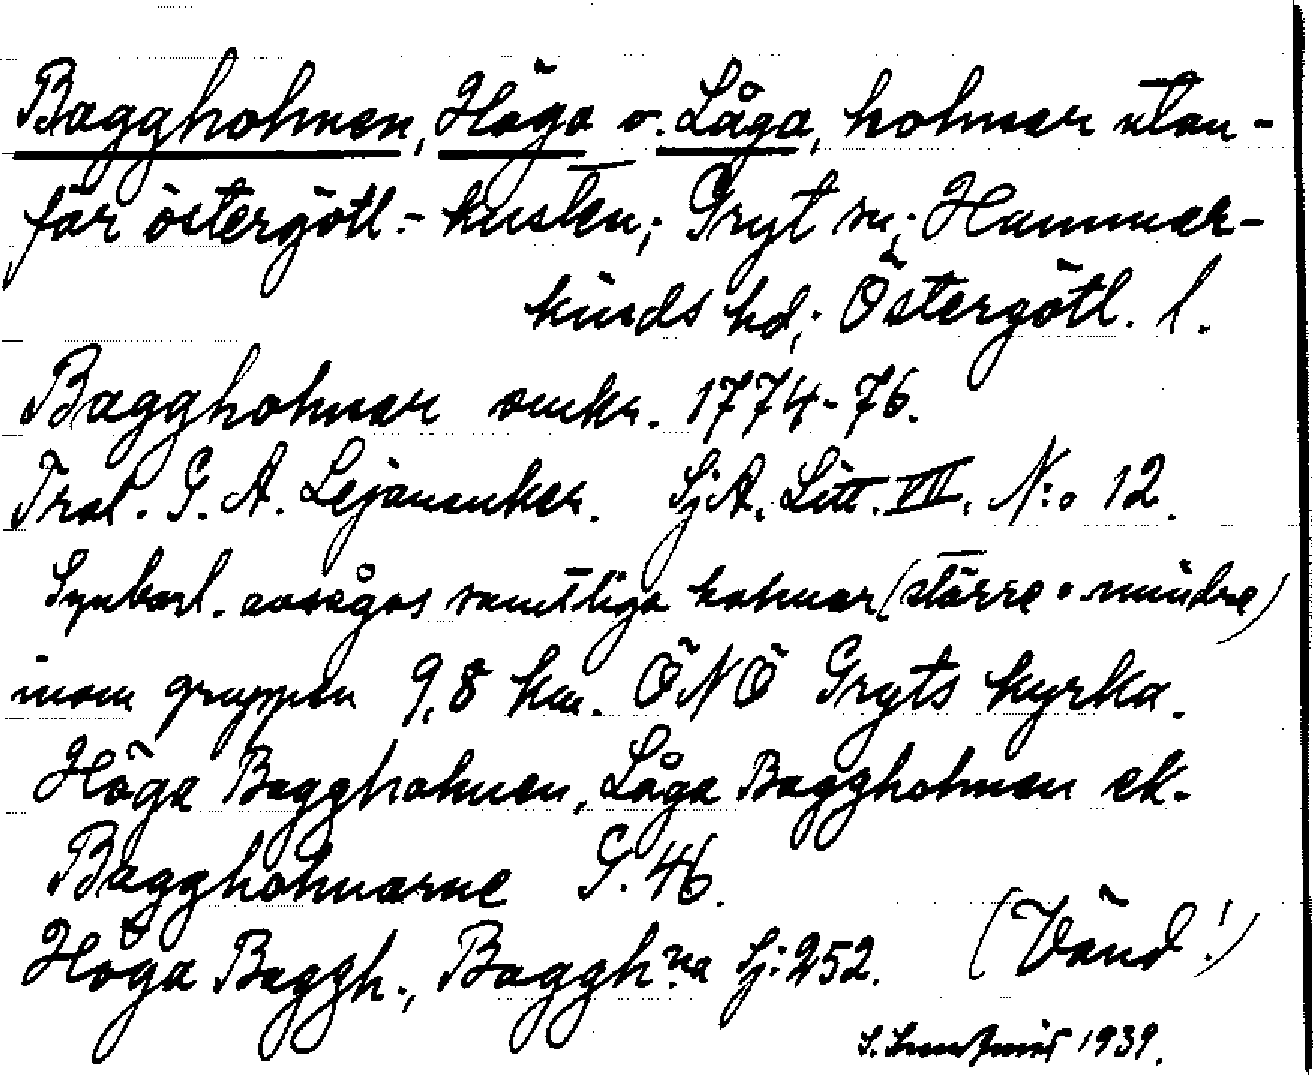 Baggholmen, Höga o. Låga, holmar utan-
för östergötl.- kusten; Gryt sn; Hammar-
kinds hd; Östergötl. l.
Baggholmar omkr. 1774-76.
Trol. G. A. Lejonanker. SjA. Litt. VII. N:o 12.
Synbarl. avsågos samtliga holmar (större o mindre)
inom gruppen 9,8 km. ÖNÖ Gryts kyrka.
Höga Baggholmen, Låga Baggholmen ek.
Baggholmarne G. 46.
Höga Baggh., Baggh:na Sj: 252. (Vänd!)
S. 1939.